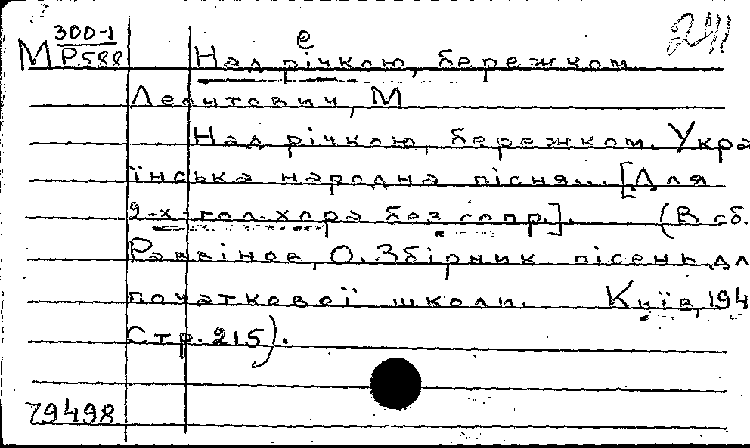 300-1 е 241
М Р588 Над річкою, бережком
Леонтович, М
Над річкою, бережком. Укра
їнська народна пісня... [Для
2-х гол. хора без сопр.]. (В сб.
Раввінов, О. Збірник пісень дл
початкової школи. Київ, 194
Стр. 215).
79498